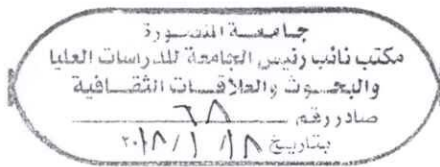 جامعة المنصورة
مكتب نائب رئيس الجامعة للدراسات العليا
والبحوث والعلاقات الثقافية
صادر رقم ٦٨
بتاريخ ١٨ / ١ / ٢٠١٨